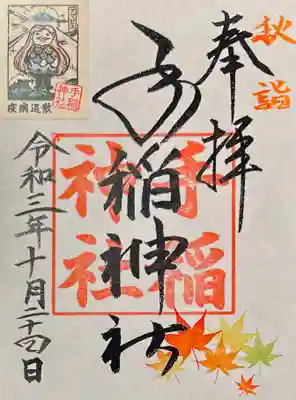 秋詣
奉拝
手稲神社
手稲神社
令和三年十月二十四日
アマビエ
手稲神社
疫病退散